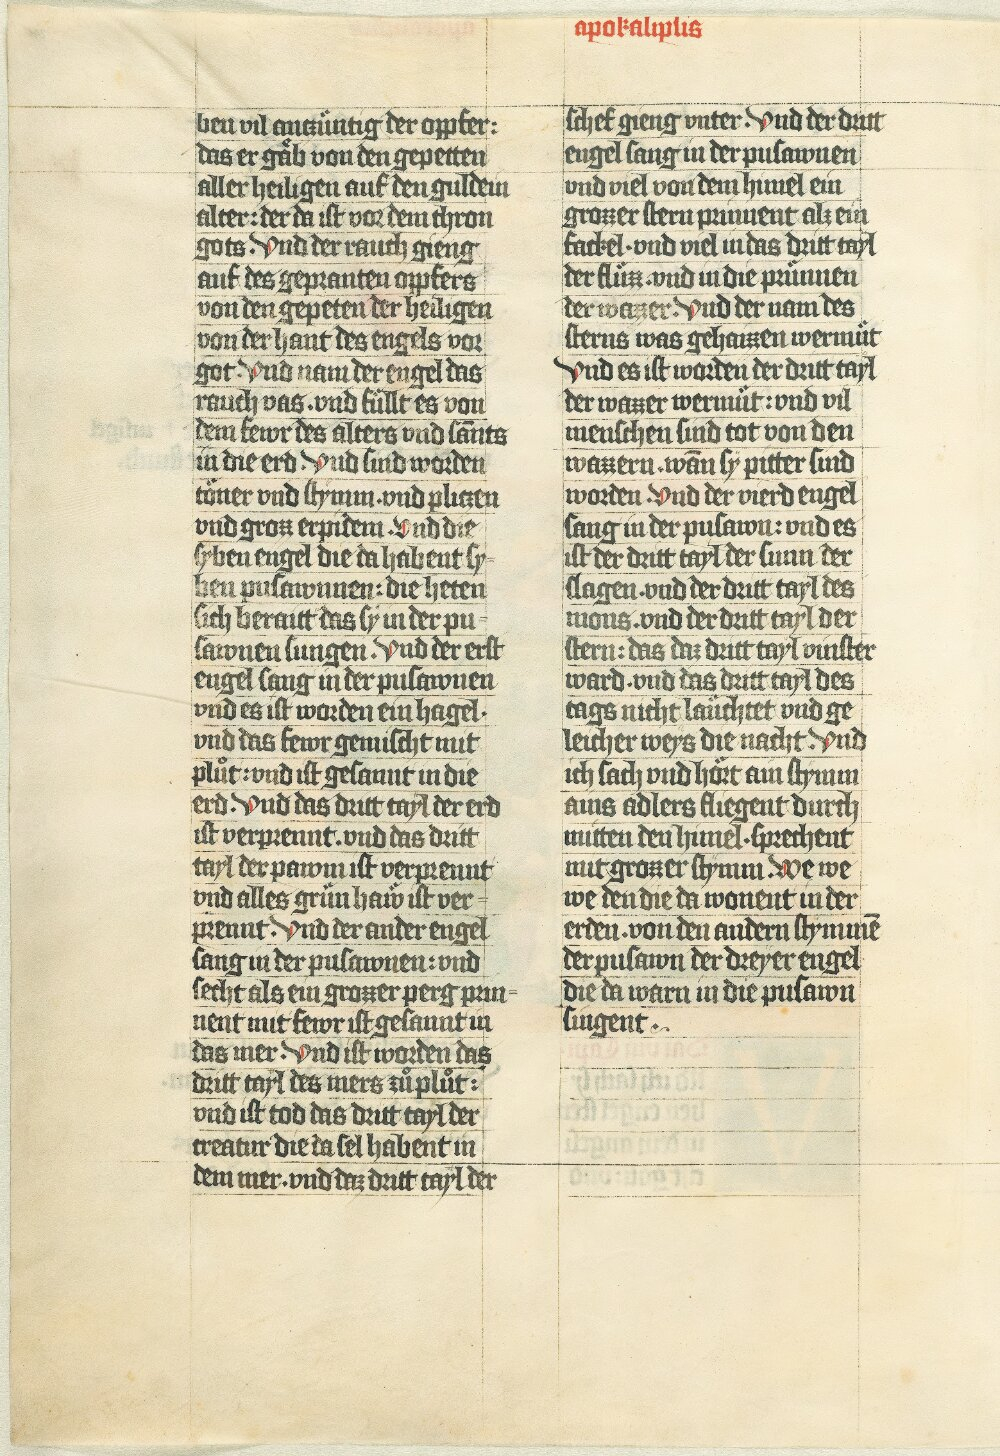 apokalipsis
ben vil anzüntig der oppfer:
das er gåb von den gepetten
aller heiligen auf den guldein
alter: der da ist vor dem thron
gots. Vnd der rauch gieng
auf des gepranten oppfers
von den gepeten der heiligen
von der hant des engels vor
got. Vnd nam der engel das
rauch vas. vnd füllt es von
dem fewr des alters vnd sānts
in die erd. Vnd sind worden
töner vnd stymm. vnd pliczen
vnd grozz erpidem. Vnd die
syben engel die da habent sy=
ben pusawnnen: die heten
sich beraitt das sy in der pu=
sawnen sungen. Vnd der erst
engel sang in der pusawnen
vnd es ist worden ein hagel.
vnd das fewr gemischt mit
plůt: vnd ist gesannt in die
erd. Vnd das dritt tayl der erd
ist verprennt. vnd das dritt
tayl der pawm ist verprennt
vnd alles grün haẅ ist ver=
prennt. Vnd der ander engel
sang in der pusawnen: vnd
secht als ein grozzer perg prin=
nent mit fewr ist gesannt in
das mer. Vnd ist worden das
dritt tayl des mers zů plůt:
vnd ist tod das dritt tayl der
creatur die da sel habent in
dem mer. vnd daz dritt tayl der
schef gieng vnter. Vnd der dritt
engel sang in der pusawnen
vnd viel von dem himel ein
grozzer stern prinnent alz ein
fackel. vnd viel in das dritt tayl
der flüzz. vnd in die prünnen
der wazzer. Vnd der nam des
sterns was gehaizzen wermüt
Vnd es ist worden der dritt tayl
der wazzer wermüt: vnd vil
menschen sind tot von den
wazzern. wān sy pitter sind
worden Vnd der vierd engel
sang in der pusawn: vnd es
ist der dritt tayl der sunn der
slagen. vnd der dritt tayl des
mons. vnd der dritt tayl der
stern: das daz dritt tayl vinster
ward. vnd das dritt tayl des
tags nicht laüchtet vnd ge
leicher weys die nacht. Vnd
ich sach vnd hört ain stymm
ains adlers fliegent durch
mitten den himel. sprechent
mit grozzer stymm. We we
we den die da wonent in der
erden. von den andern stymmē
der pusawn der dreyer engel
die da warn in die pusawn
singent.